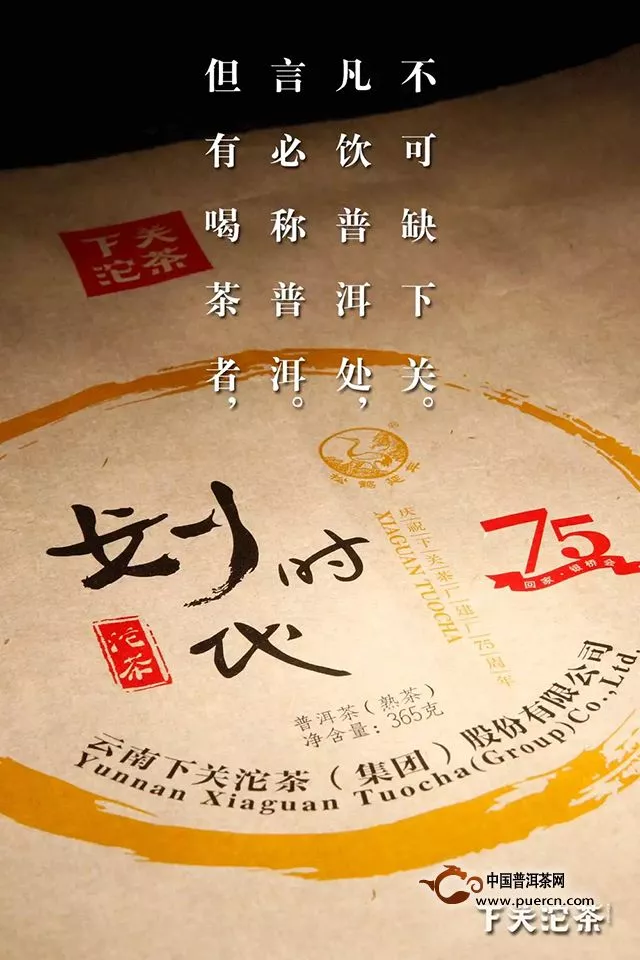 但有喝茶者,
言必称普洱。
凡饮普洱处,
不可缺下关。
下关
沱茶
松鹤延年
划时代
沱茶
庆祝下关茶厂建厂75周年
XIAGUAN TUOCHA
75
回家·银桥会
普洱茶(熟茶)
净含量:365克
云南下关沱茶(集团)股份有限公司
Yunnan Xiaguan Tuocha(Group)Co.,Ltd.
中国普洱茶网
www.puercn.com
下关沱茶